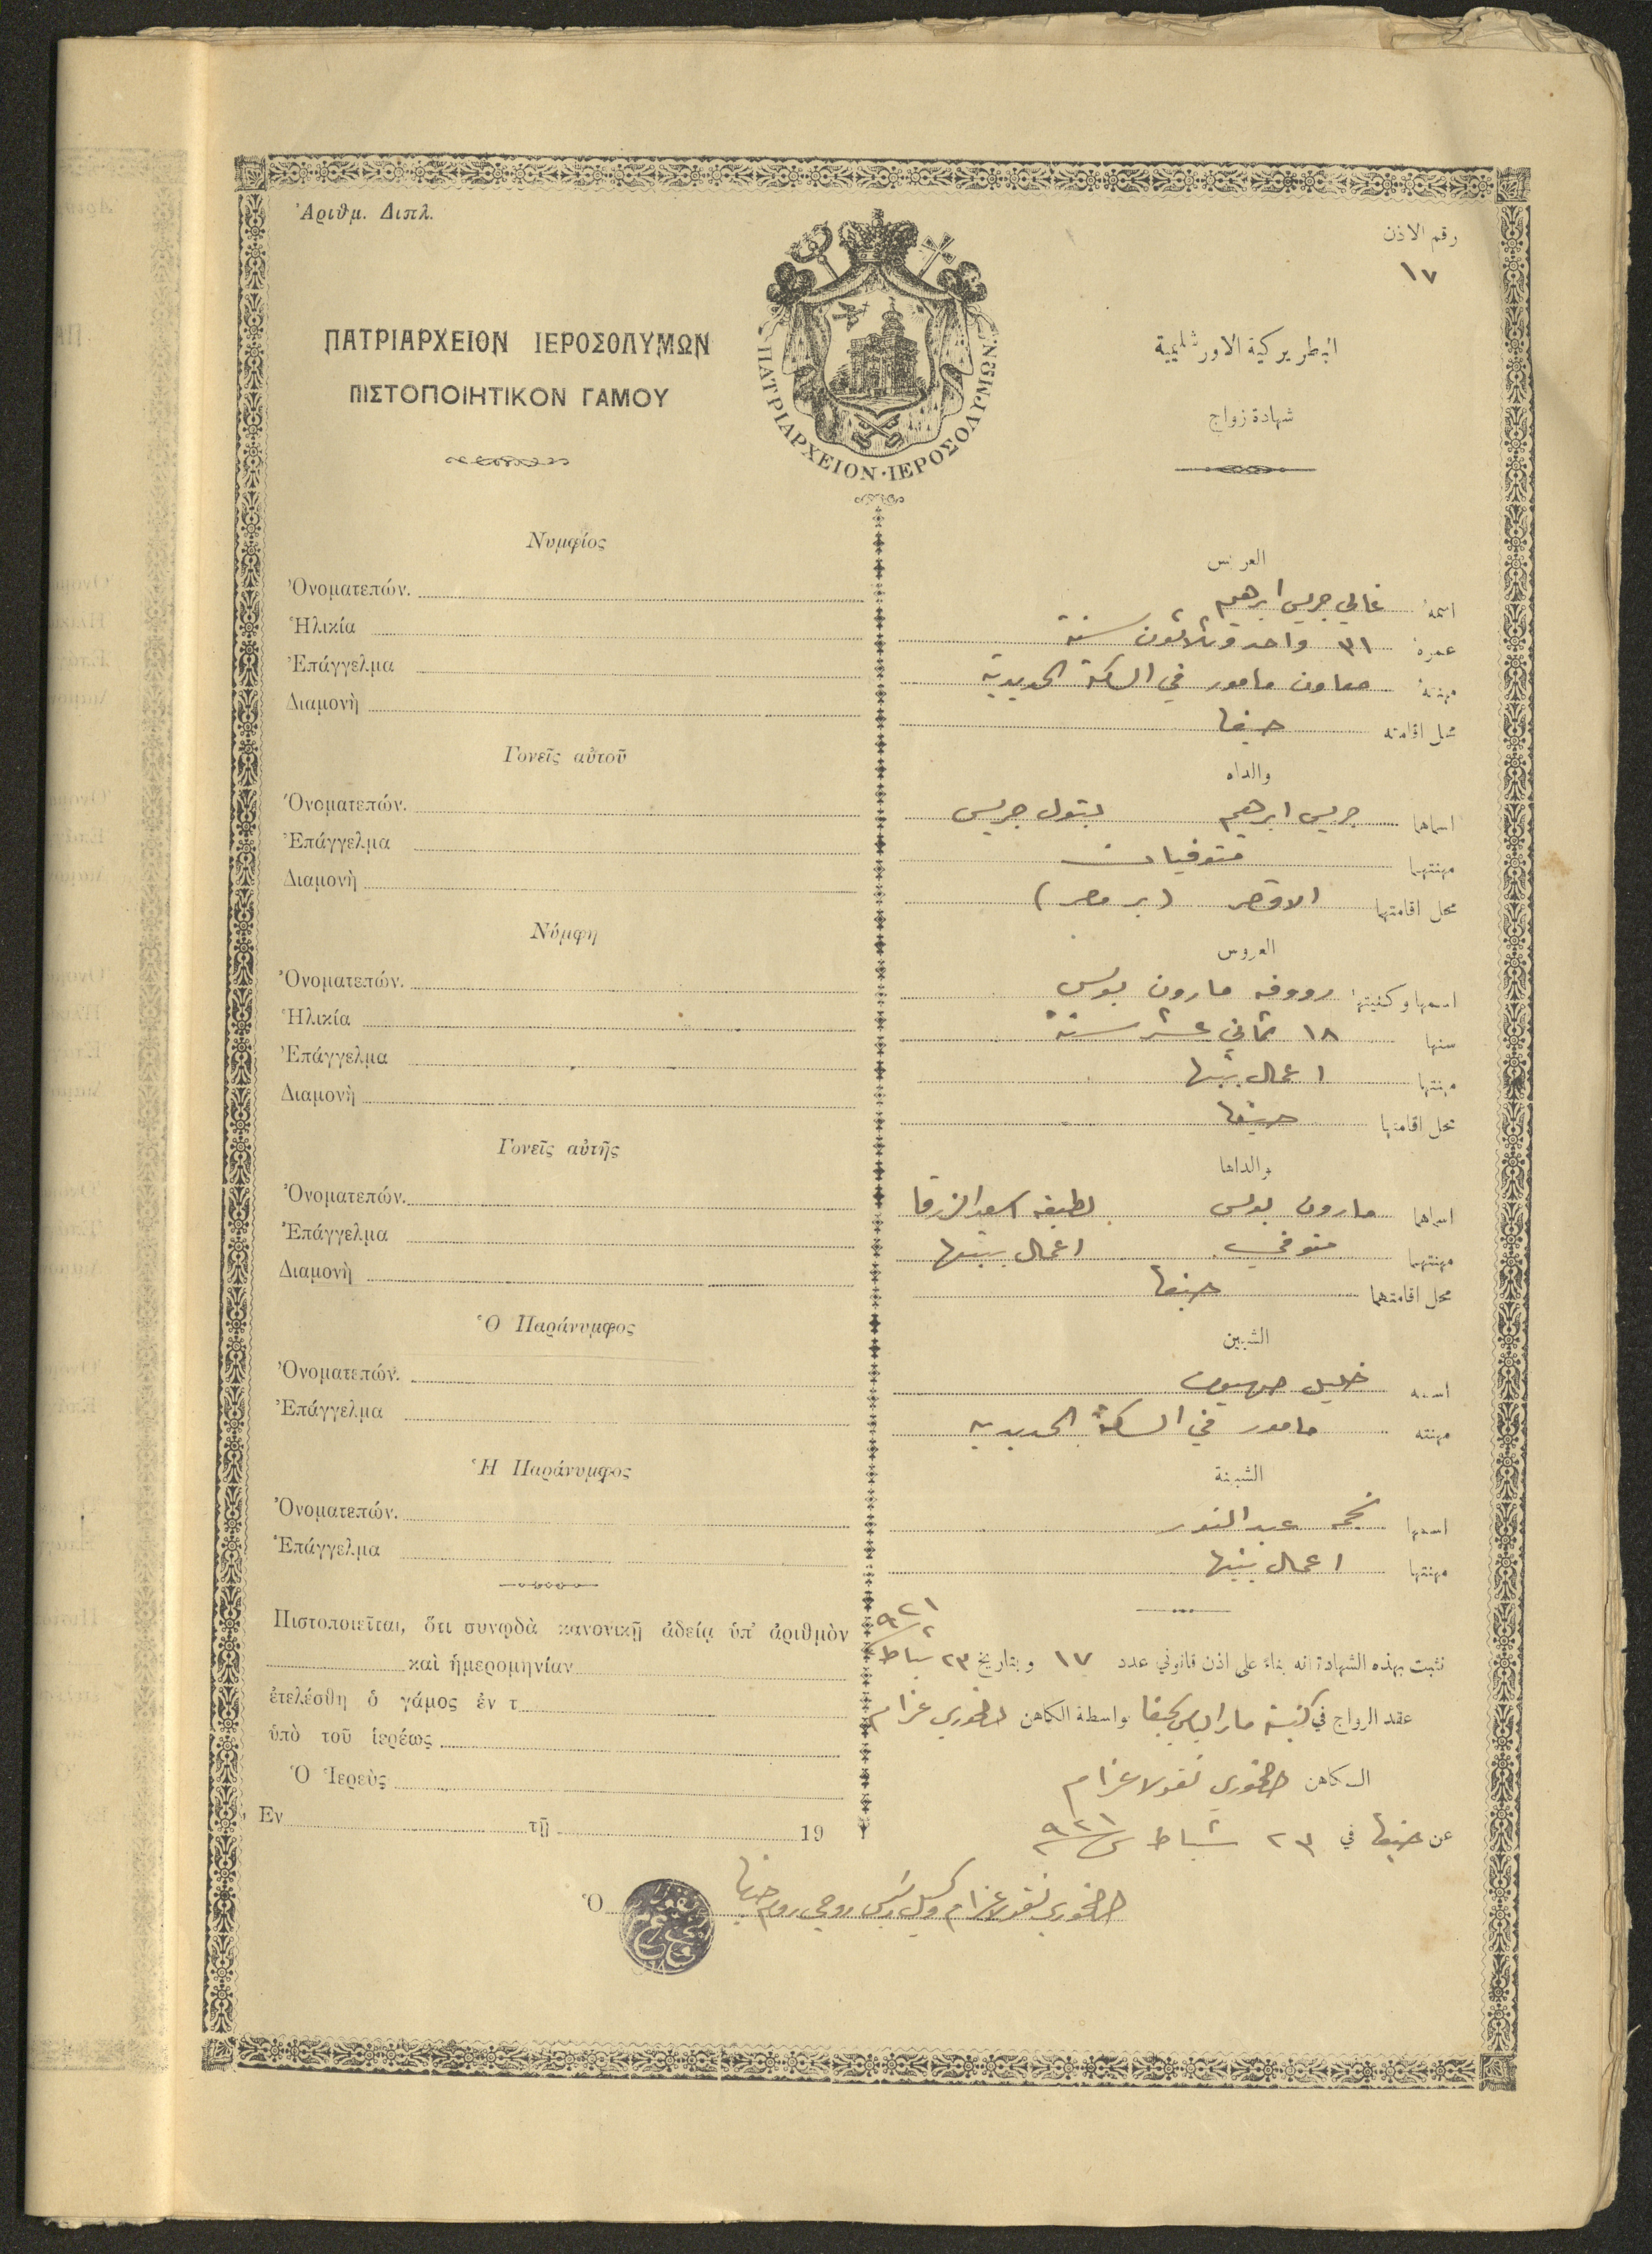 Ἀριθμ. Διπλ.
رقم الاذن
١٧
ΠΑΤΡΙΑΡΧΕΙΟΝ ΙΕΡΟΣΟΛΥΜΩΝ
ΠΙΣΤΟΠΟΙΗΤΙΚΟΝ ΓΑΜΟΥ
ΠΑΤΡΙΑΡΧΕΙΟΝ·ΙΕΡΟΣΟΛΥΜΩΝ·
البطريركية الاورشليمية
شهادة زواج
Νυμφίος
Ὀνοματεπών.
Ἡλικία
Ἐπάγγελμα
Διαμονὴ
Γονεῖς αὐτοῦ
Ὀνοματεπών.
Ἐπάγγελμα
Διαμονὴ
Νύμφη
Ὀνοματεπών.
Ἡλικία
Ἐπάγγελμα
Διαμονὴ
Γονεῖς αὐτῆς
Ὀνοματεπών.
Ἐπάγγελμα
Διαμονὴ
Ὁ Παράνυμφος
Ὀνοματεπών.
Ἐπάγγελμα
Ἡ Παράνυμφος
Ὀνοματεπών.
Ἐπάγγελμα
Πιστοποιεῖται, ὅτι συνῳδὰ κανονικῇ ἀδείᾳ ὑπ' ἀριθμὸν
καὶ ἡμερομηνίαν
ἐτελέσθη ὁ γάμος ἐν τ
ὑπὸ τοῦ ἱερέως
Ὁ Ἱερεὺς
Ἐν τῇ 19
العريس
اسمه غالي جريس ابرهيم
عمره ٣١ واحد وثلاثون سنة
مهنته معاون مامور في السكة الحديدية
محل اقامته حيفا
والداه
اسماهما جريس ابرهيم بتول جريس
مهنتهما متوفيان
محل اقامتهما الاقصر (بر مصر)
العروس
اسمها وكنيتها رووفه مارون بولس
سنها ١٨ ثماني عشر سنة
مهنتها اعمال بيتها
محل اقامتها حيفا
والداها
اسماهما مارون بولس لطيفه اسعد الزرقا
مهنتهما متوفي اعمال بيتها
محل اقامتهما حيفا
الشبين
اسمه خليل صهيون
مهنته مامور في السكة الحديديه
الشبينة
اسمها نجمه عبد النور
مهنتها اعمال بيتها
نثبت بهذه الشهادة انه بناء على اذن قانوني عدد ١٧ وبتاريخ ٢٣ شباط ٩٢١
عقد الزواج في كنيسة مار الياس بحيفا بواسطة الكاهن الخوري عزام
الكاهن الخوري نقولا عزام
عن حيفا في ٢٣ شباط ٩٢١
Ὁ
الخوري نقولا عزام وكيل رئيس روحي روم حيفا